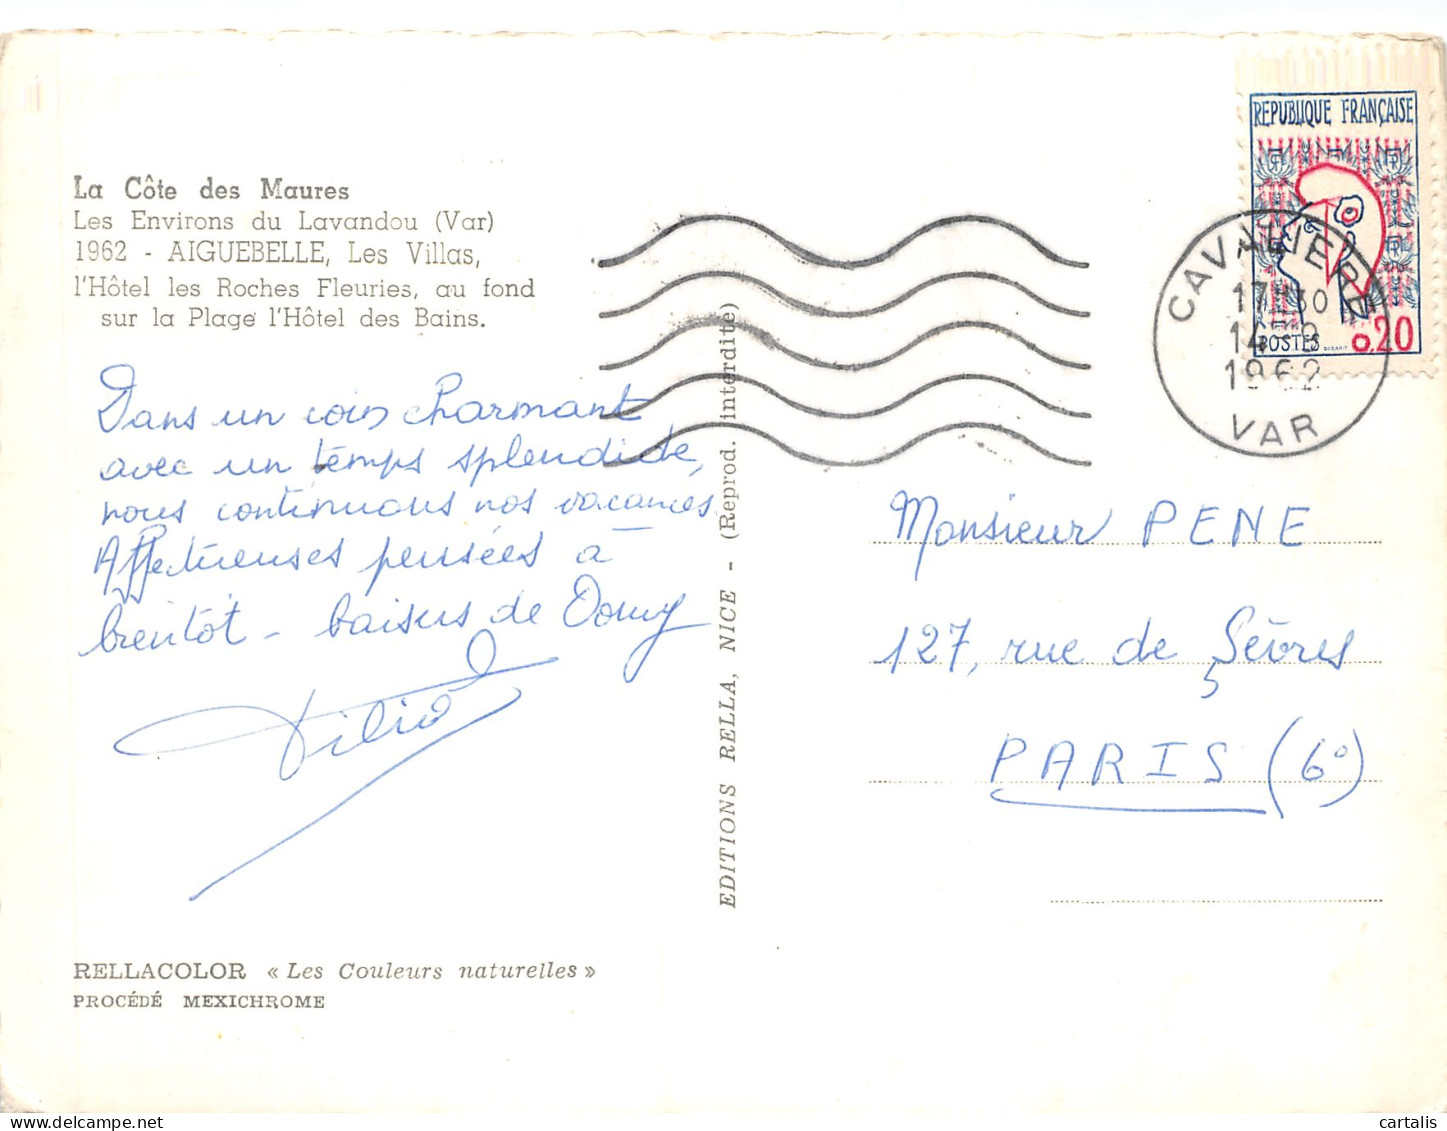 La Côte des Maures
Les Environs du Lavandou (Var)
1962 - AIGUEBELLE, Les Villas,
l'Hôtel les Roches Fleuries, au fond
sur la Plage l'Hôtel des Bains.
Dans un coin charmant
avec un temps splendide,
nous continuons nos vacances.
Affectueuses pensées à
bientôt - baisers de Domy
RELLACOLOR « Les Couleurs naturelles »
PROCÉDÉ MEXICHROME
EDITIONS RELLA, NICE - (Reprod. interdite)
REPUBLIQUE FRANÇAISE
POSTES 0.20
CAVALIERE
17H30
1962
VAR
Monsieur PENE
127, rue de Sèvres
PARIS (6°)
cartalis